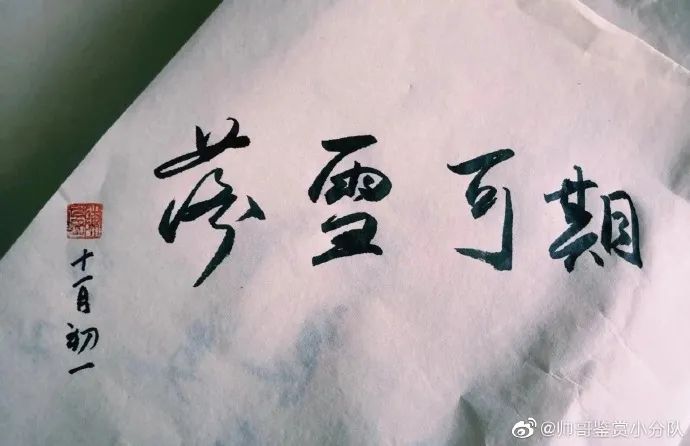 落雪可期
十一月初一
@帅哥鉴赏小分队